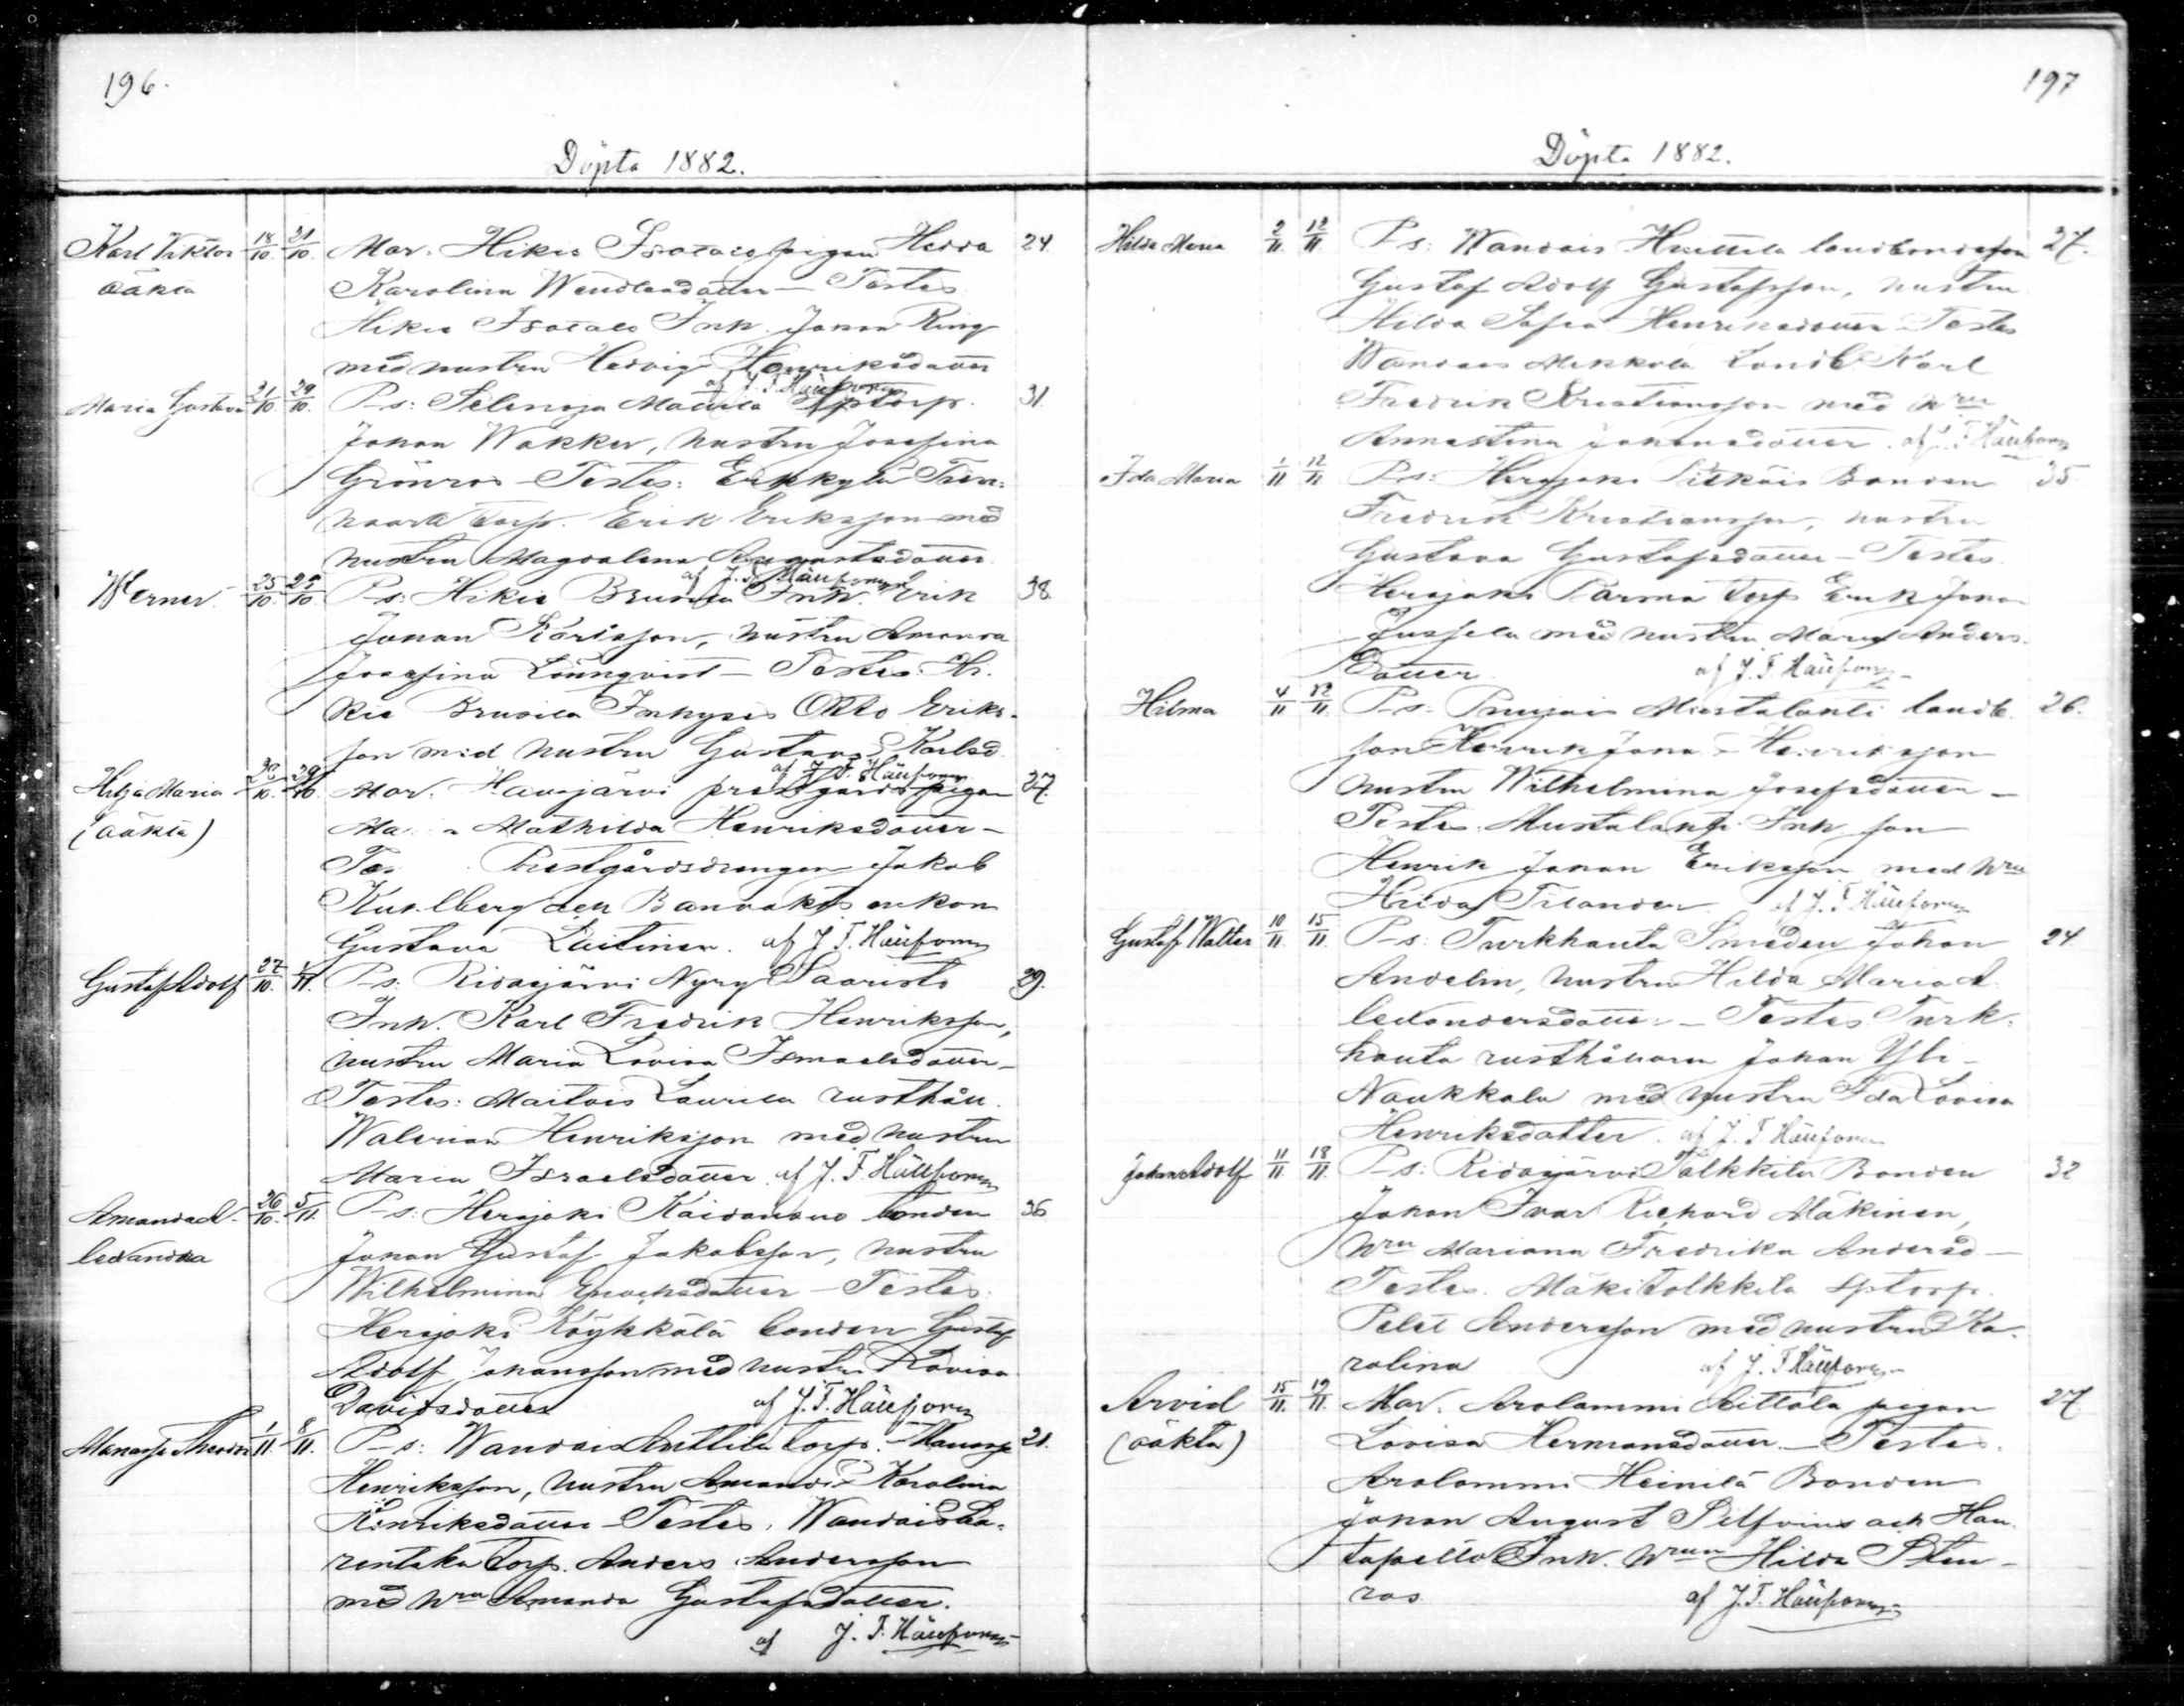 196.
Döpta 1882.
Karl Viktor 18/10. 21/10. Mor. Hikiä Isotalo pigan Hedda 24.
oäkta Karolina Wendlasdotter – Testes
Hikiä Isotalo Inh. Johan Ring
med hustru Hedvig Henriksdotter
af J. F. Häufoms
Maria Gustava 21/10. 29/10. P-s: Selenoja Mattila Sptorp. 31.
Johan Wakker, hustru Josefina
Grönros – Testes: Erkkylä
Torp. Erik Eriksson med
hustru Magdalena Augustsdotter.
af J. F. Häufoms
Werner. 25/10. 29/10. P-s: Hikiä Brusila Inh. Erik 38.
Johan Karlsson, hustru Amanda
Josefina Lönnqvist – Testes: Hi-
kiä Brusila Inhyses Otto Eriks-
son med hustru Gustava Karlsd.
af J. F. Häufoms
Hilja Maria /10. 29/10. Mor. Hausjärvi prestgårdspigan 27.
(oäkta) Mathilda Henriksdotter –
Tes Prestgårdsdrengen Jakob
Kullberg och Banvakts enkan
Gustava Laitinen. af J. F. Häufoms
Gustaf Adolf 27/10. 1/11. P-s: Ridasjärvi Nyry Saaristo 29.
Inh. Karl Fredrik Henriksson,
hustru Maria Lovisa Ismaelsdotter –
Testes: Maitois Laurila rusthåll.
Walerian Henriksson med hustru
Maria Israelsdotter. af J. F. Häufoms
Amanda A- 26/10. 5/11. P-s: Herajoki Kaidanovo bonden 36
lexandra Johan Gustaf Jakobsson, hustru
Wilhelmina Enochsdotter – Testes.
Herajoki Röykkälä bonden Gustaf
Adolf Johansson med hustru Lovisa
Davidsdotter af J. F. Häufoms
Manasse Theodor 1/11. 8/11. P-s: Wandais Anttila torp. Manasse 21.
Henriksson, hustru Amanda Karolina
Henriksdotter – Testes. Wandais La-
rentaka Torp. Anders Andersson
med hru Amanda Gustafsdotter.
af J. F. Häufoms
197
Döpta 1882.
Hilda Maria 2/11. 12/11. P-s: Wandais Huttila landbondeson 27.
Gustaf Adolf Gustafsson, hustru
Hilda Sofia Henriksdotter – Testes
Wandais Mikkola Landb. Karl
Fredrik Kristiansson med hru
Annastina Johansdotter. af J. F. Häufoms
Ida Maria 1/11 12/11 P-s: Herajoki Pitkäis Bonden 35
Fredrik Kristiansson, hustru
Gustava Gustafsdotter – Testes.
Herajoki Pärmä Torp. Erik Johan
Jussila med hustru Maria Anders-
dotter. af J. F. Häufoms
Hilma 4/11 12/11. P-s: Puujais Mustalahti landb. 26.
son Henrik Johan Henriksson
hustru Wilhelmina Josefsdotter –
Testes: Mustalahti Inh. son
Henrik Johan Eriksson med hru
Hilda Tilander. af J. F. Häufoms
Gustaf Walter 10/11. 15/11. P-s: Turkhauta Smeden Johan 24.
Andelin, hustru Hilda Maria A-
lexandersdotter – Testes Turk-
hauta rusthållaren Johan Yli-
Naukkala med hustru Ida Lovisa
Henriksdotter. af J. F. Häufoms
Johan Adolf 11/11. 18/11. P-s: Ridasjärvi Tolkkila Bonden 32
Johan Ivar Richard Mäkinen,
hru Mariana Fredrika Andersd. –
Testes. Mäkitolkkila Sptorp.
Pelet Andersson med hustru Ka-
rolina af J. F. Häufoms
Arvid 15/11. 19/11. Mor. Arolammi Aittala pigan 27.
(oäkta) Lovisa Hermansdotter. – Testes.
Arolammi Heinilä Bonden
Johan August Silfvius och Han-
tapelto Inh. hrun Hilda Sten-
ros af J. F. Häufoms